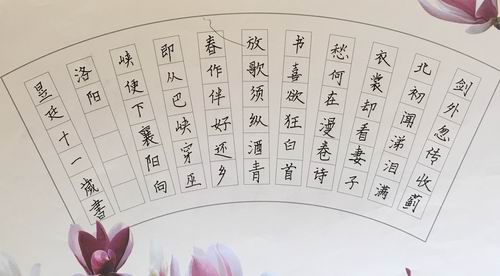 剑外忽传收蓟
北初闻涕泪满
衣裳却看妻子
愁何在漫卷诗
书喜欲狂白首
放歌须纵酒青
春作伴好还乡
即从巴峡穿巫
峡便下襄阳向
洛阳
昱廷十一歲書